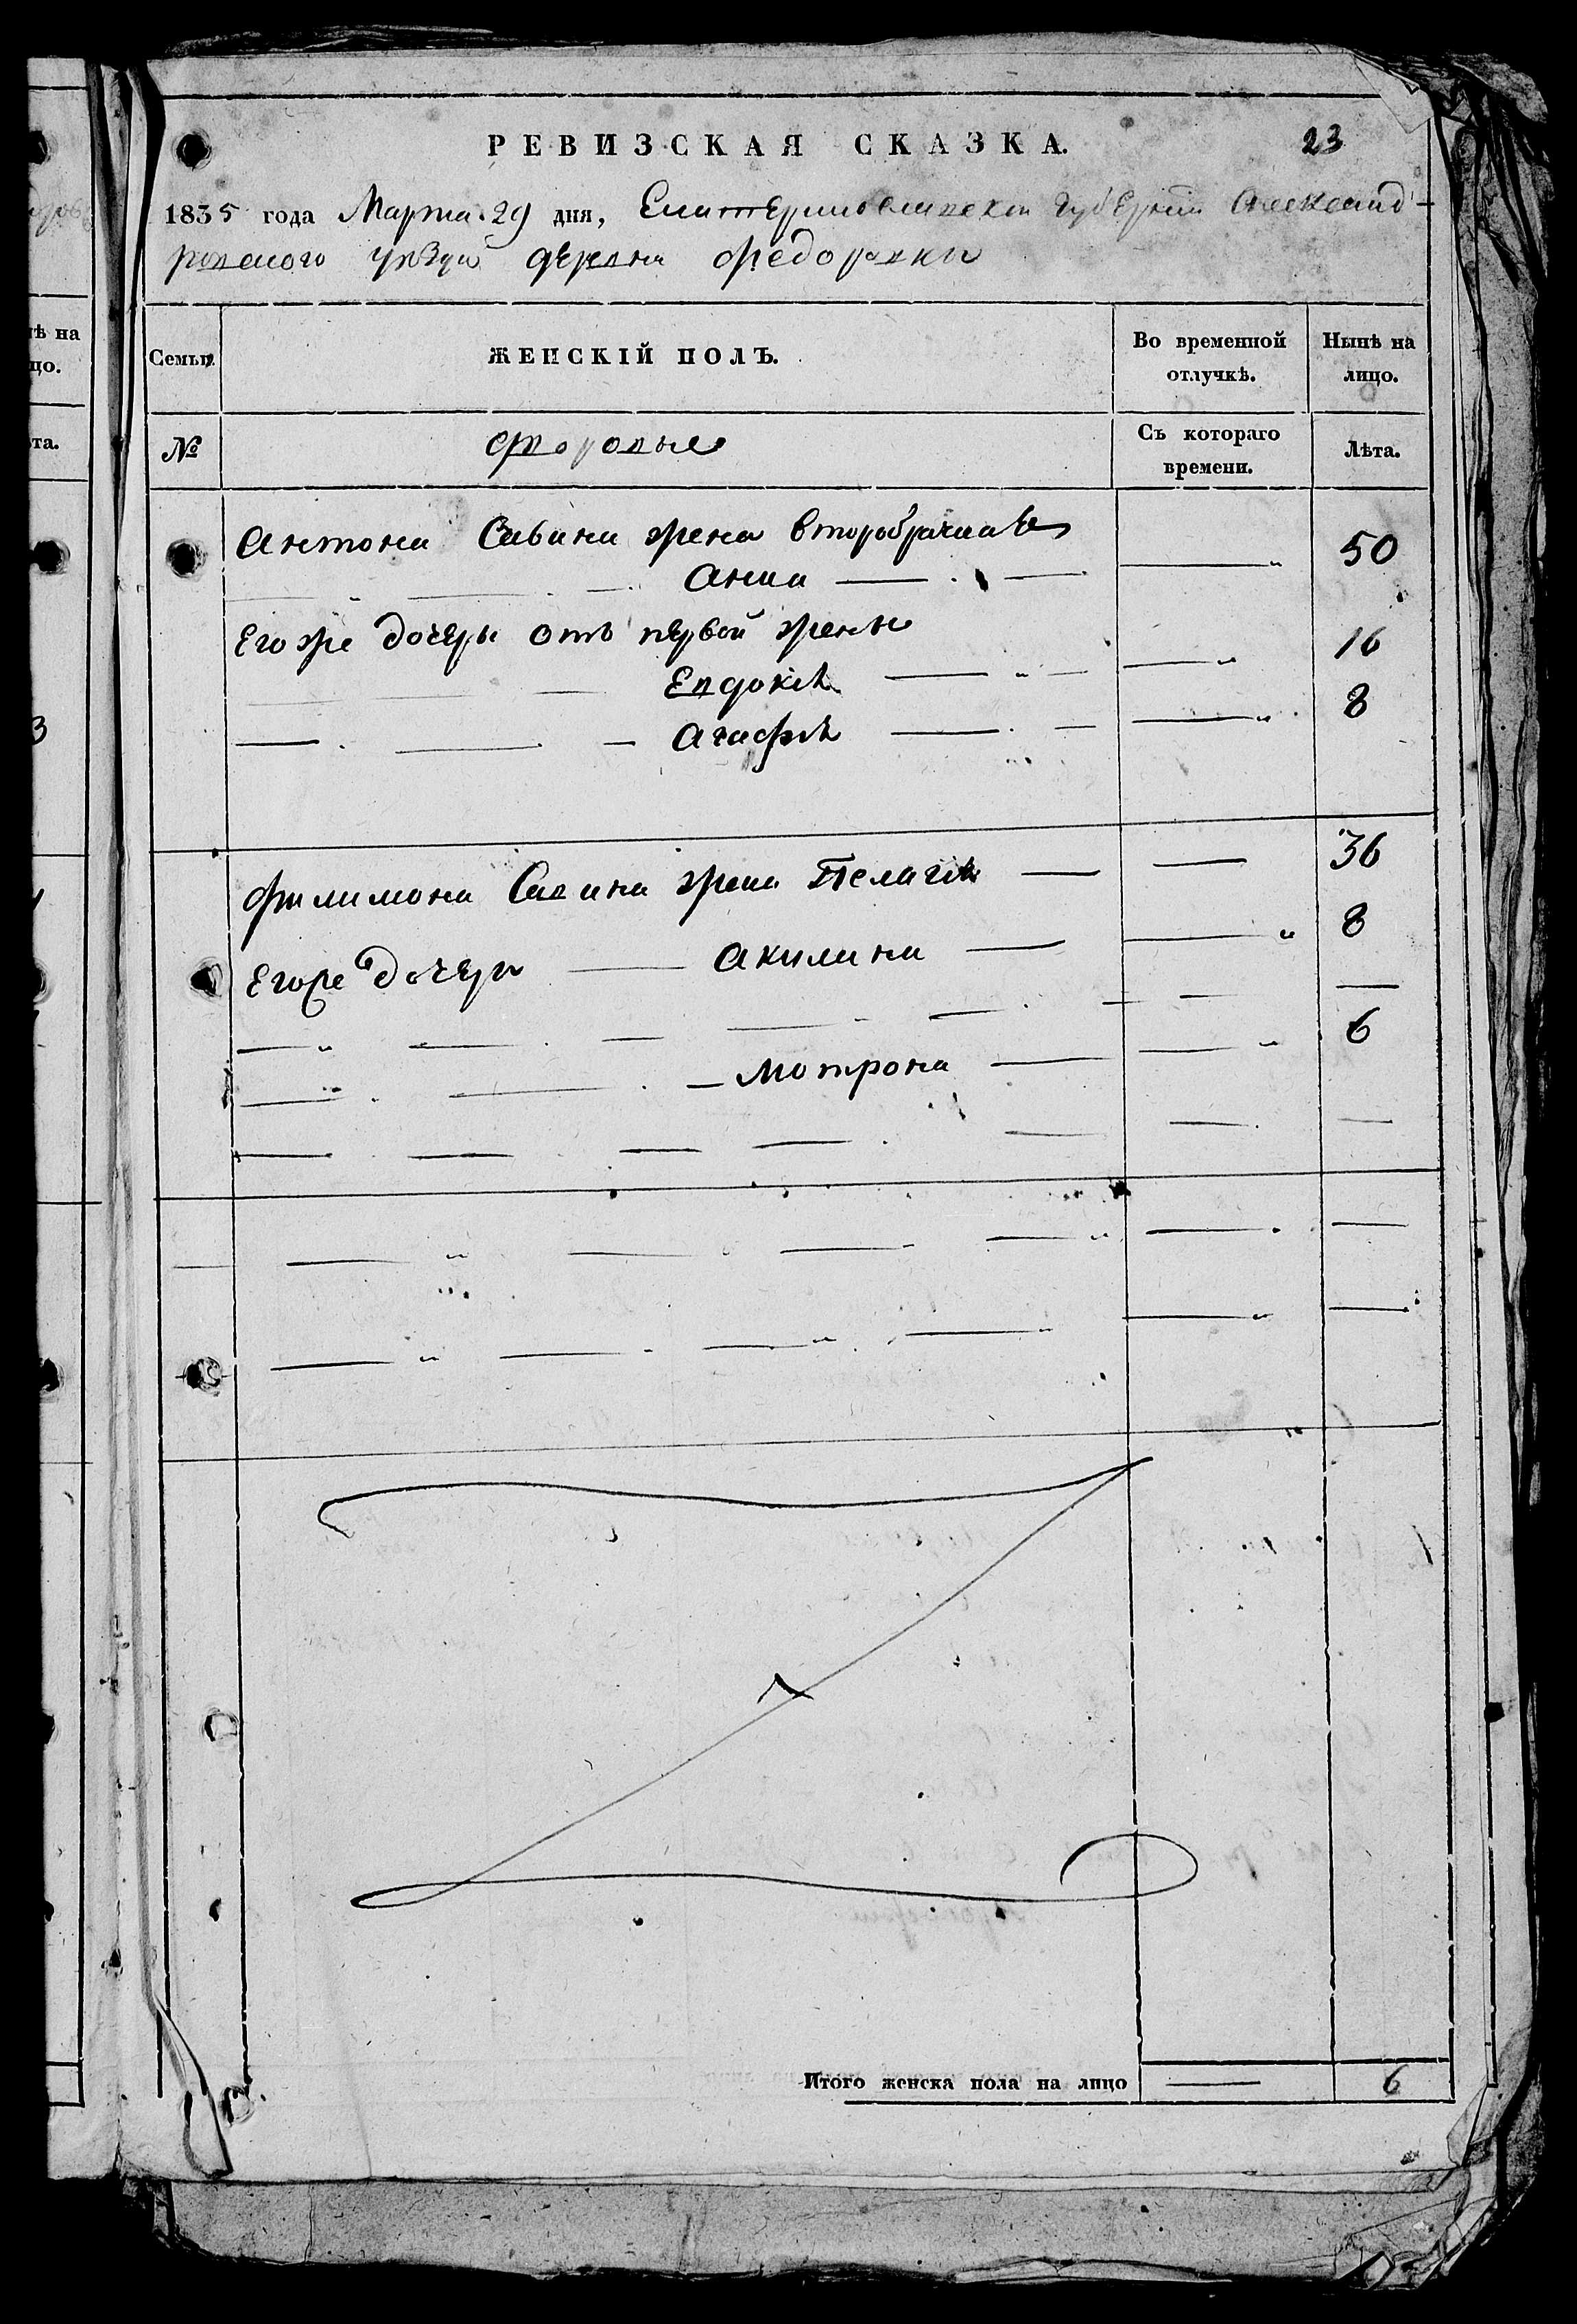 РЕВИЗСКАЯ СКАЗКА. 23
1835 года Марта 29 дня, Екатеринославской Губернии Александ-
ровского уезда деревни Федоровки
Семьи ЖЕНСКІЙ ПОЛЪ. Во временной отлучкѣ. Нынѣ на лицо.
№ Съ котораго времени. Лѣта.
Антона Савина жена второбрачная
Анна 50
Его же дочери отъ первой жены
Евдокія 16
Агафія 8
Филимона Савина жена Пелагія 36
Его же дочери Акилина 8
Мотрона 6
Итого женска пола на лицо 6